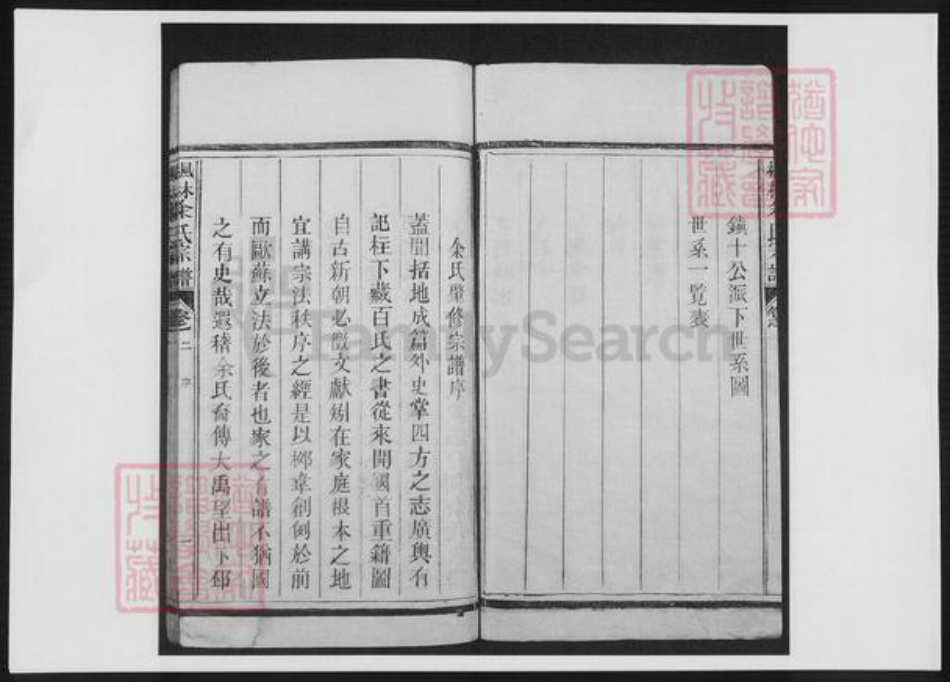 鎮十公派下世系圖
世系一覧表
余氏肇修宗譜序
蓋聞括地成篇外史掌四方之志廣輿有
記柱下藏百氏之書從來開國首重籍圖
自古新朝必徴文獻矧在家庭根本之地
宜講宗法秩序之經是以鄭韋創例於前
而歐蘇立法於後者也家之有譜不猶國
之有史哉遐稽余氏裔傳大禹望出下邳
楓林余氏宗譜
卷一
二
序
一
FamilySearch